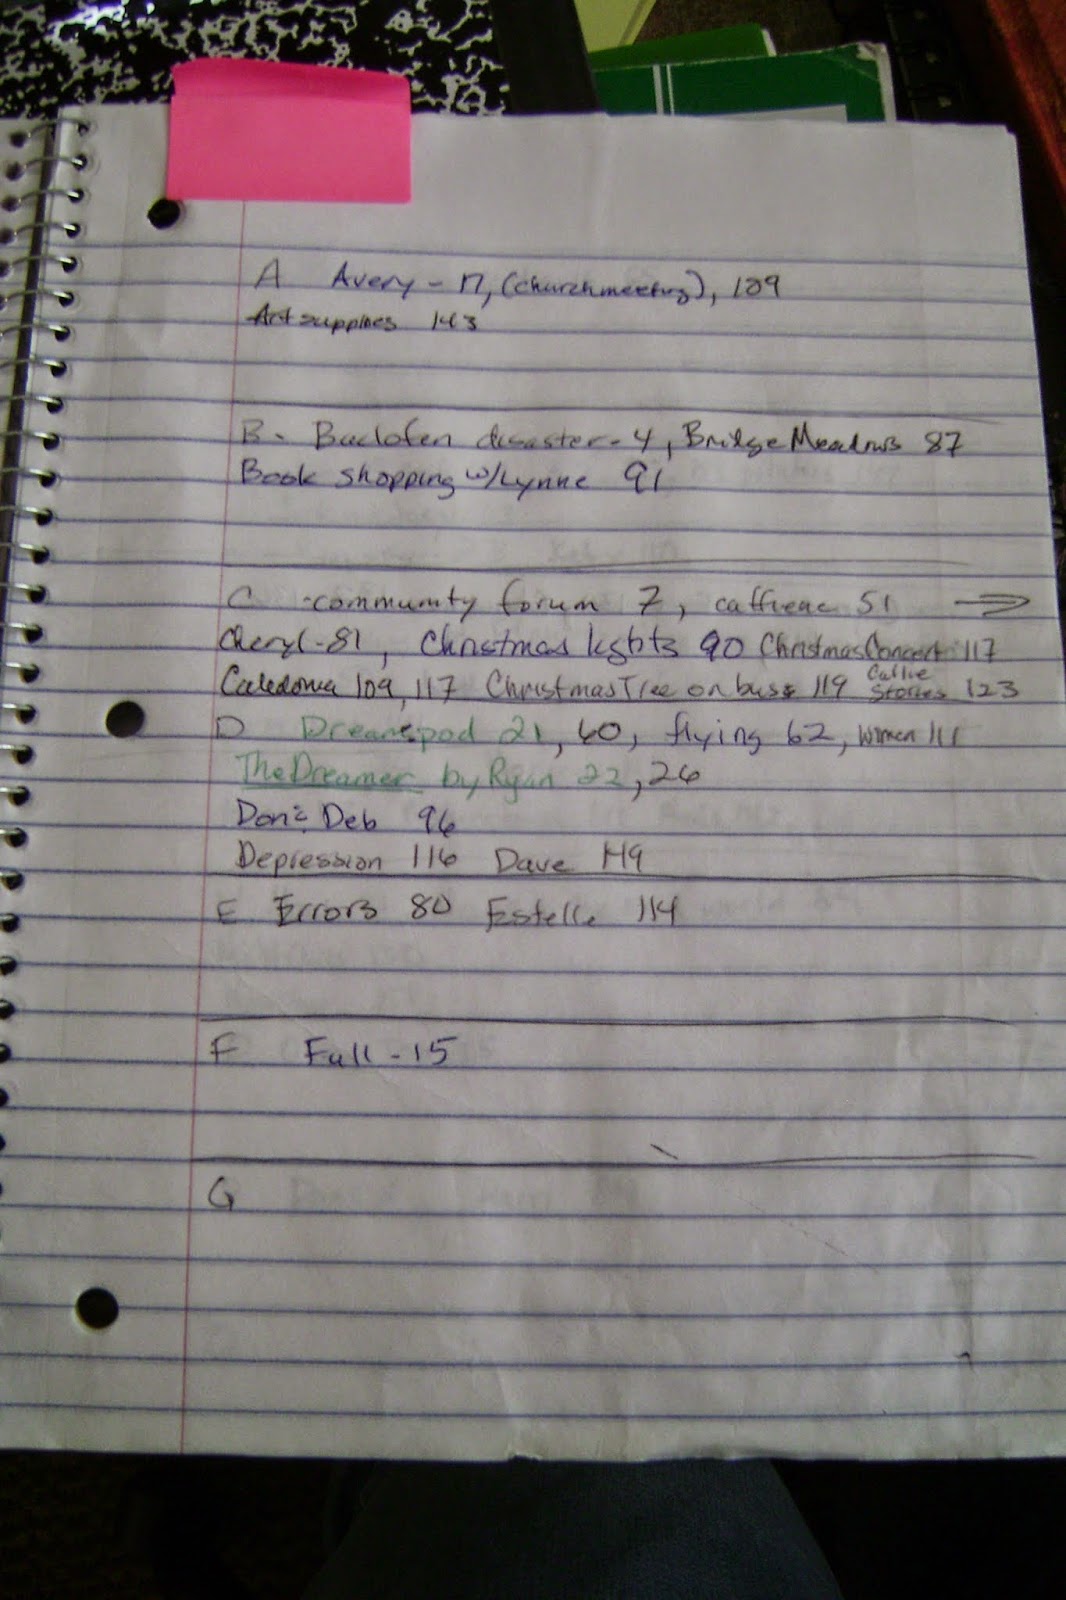 A Avery - 17, (churchmeeting), 109
Art supplies 143
B - Baclofen disaster - 4, Bridge Meadows 87
Book Shopping w/Lynne 91
C - community forum 7, caffiene 51 →
Cheryl - 81, Christmas lights 90 Christmas Concert 117
Caledonia 109, 117 Christmas Tree on bus 119 Callie Stories 123
D Dreams pod 21, 60, flying 62, women 111
The Dreamer by Ryan 22, 26
Don & Deb 96
Depression 116 Dave 149
E Errors 80 Estelle 114
F Fall - 15
G